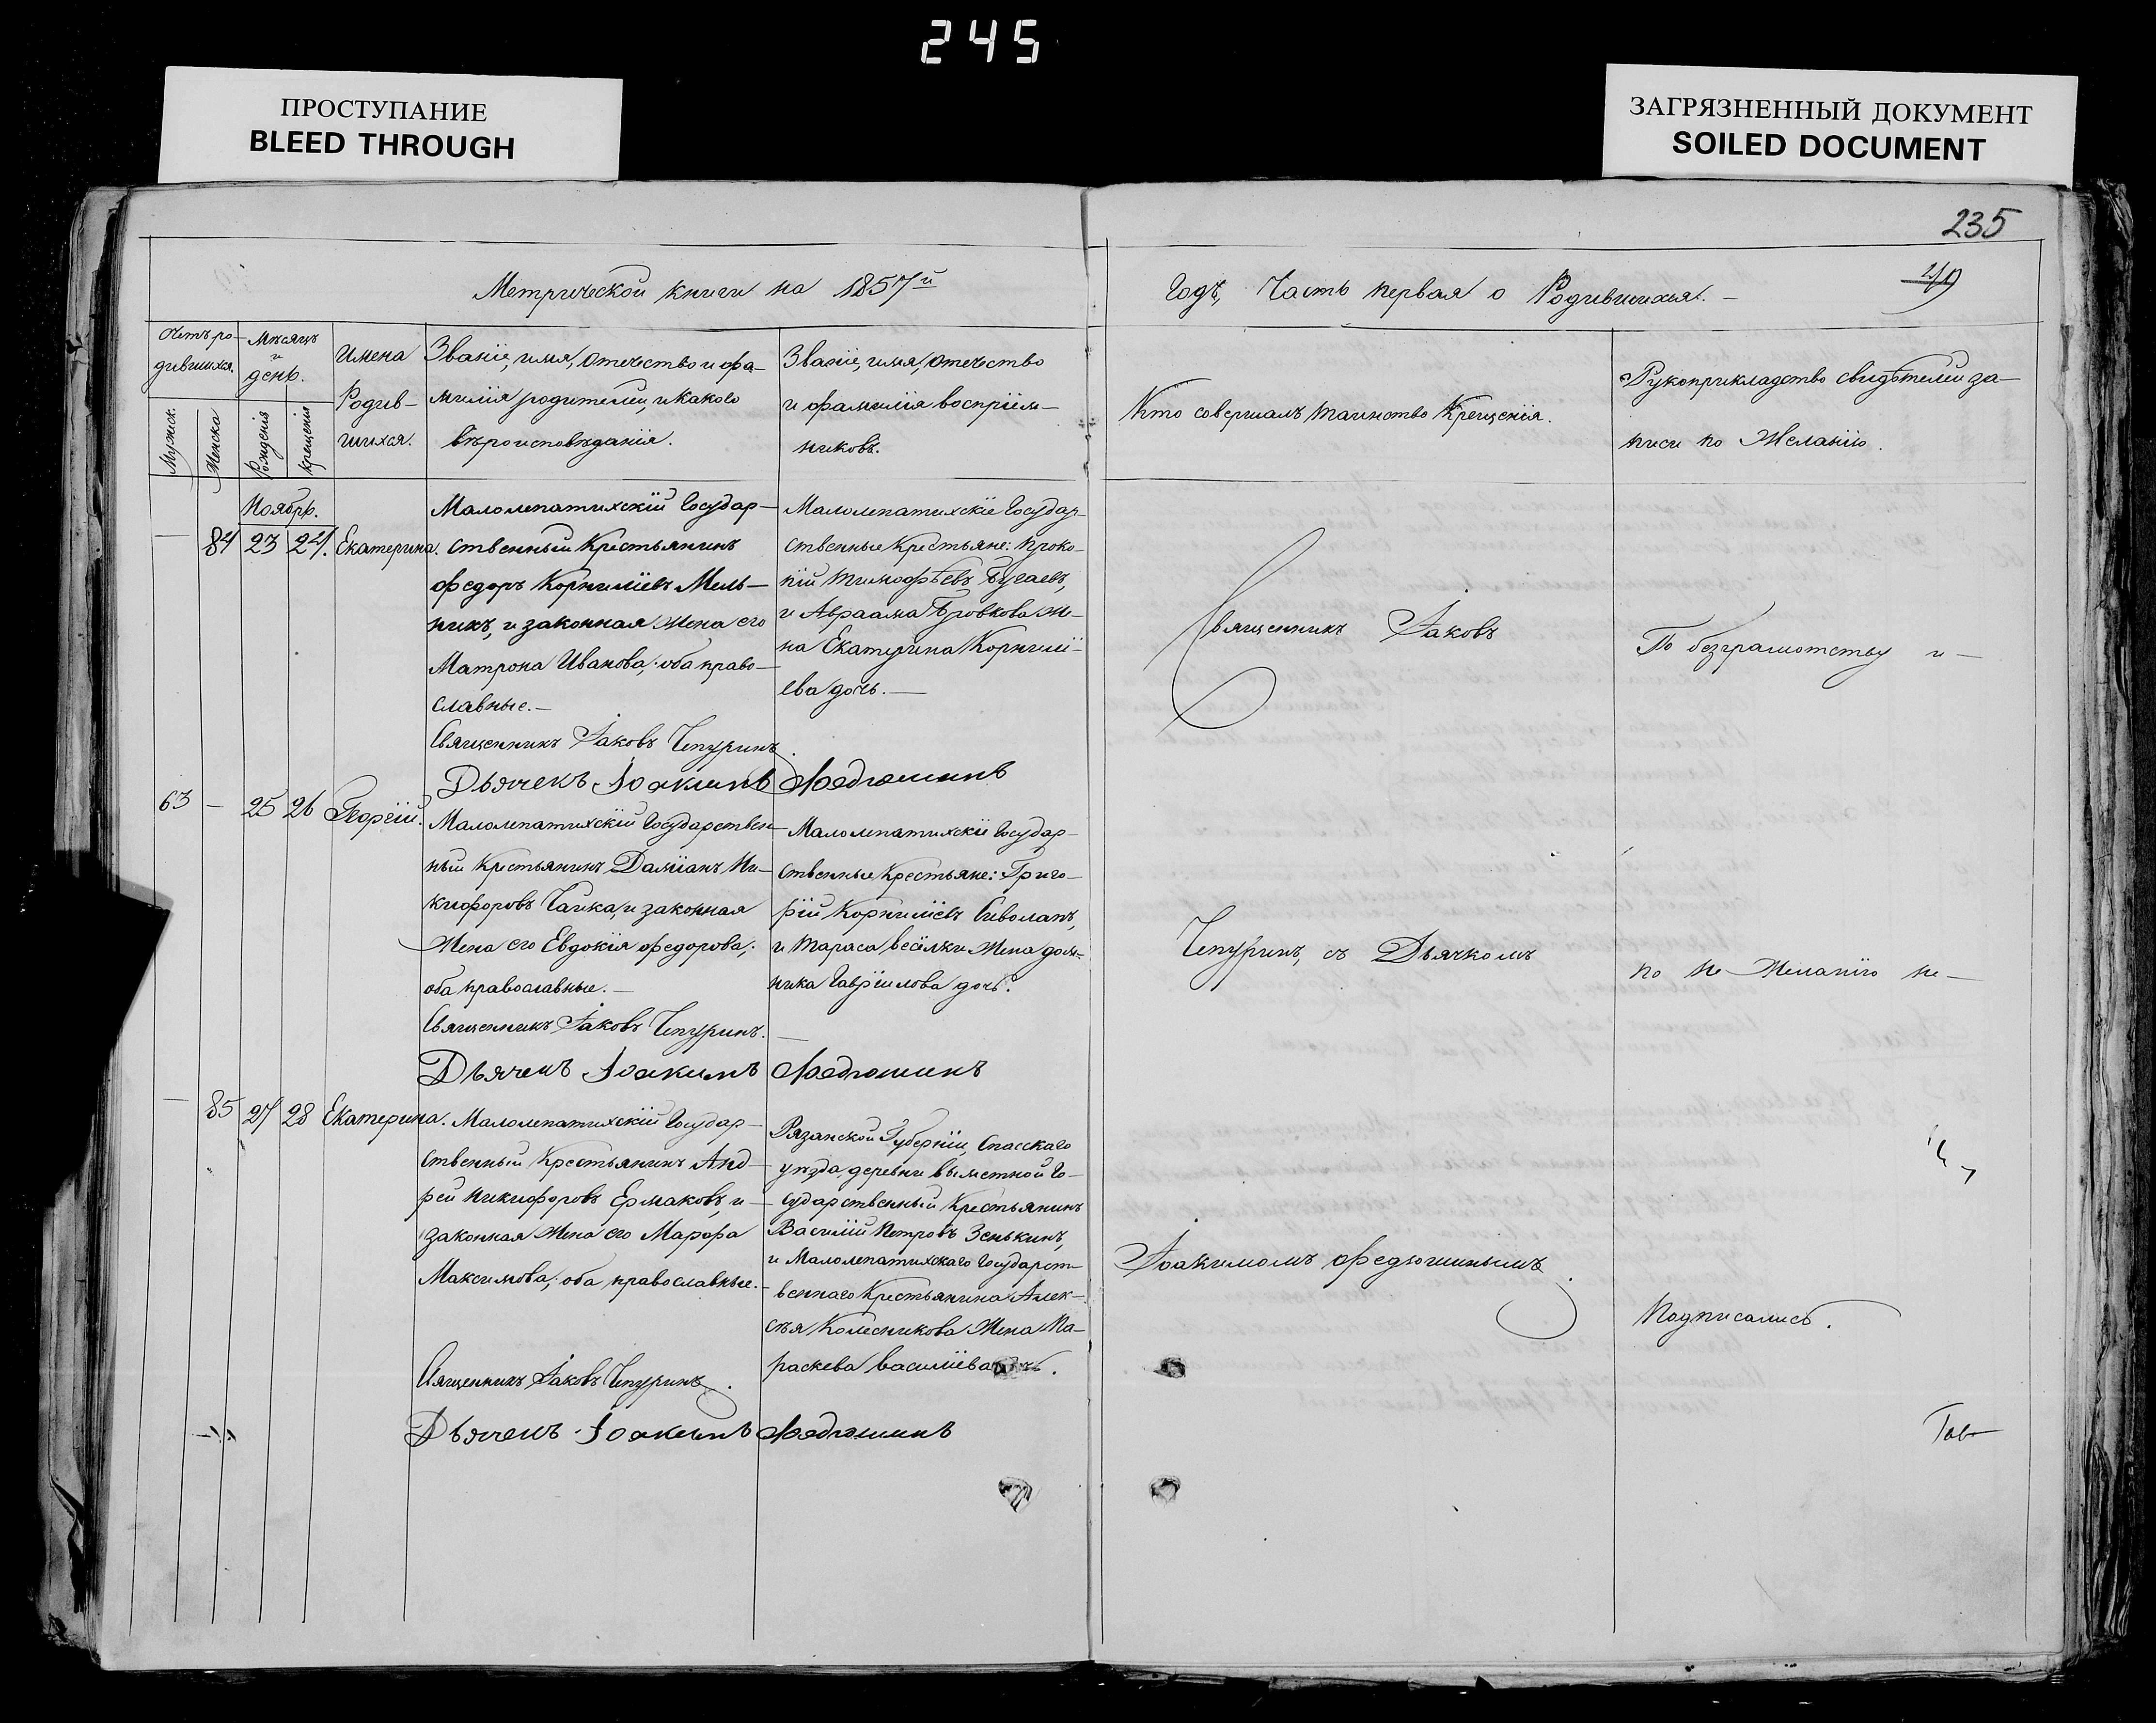 245
ПРОСТУПАНИЕ
BLEED THROUGH
ЗАГРЯЗНЕННЫЙ ДОКУМЕНТ
SOILED DOCUMENT
235
Метрической книги на 1857й
Годъ, Часть первая о Родившихся. —
Счетъ ро-
дившихся.
Мужск.
Женска
Мѣсяцъ
и
день.
Рожденія
крещенія
Имена
Родив-
шихся.
Званіе, имя, отечество и фа-
милія родителей, и какого
вѣроисповѣданія.
Званіе, имя, отечество
и фамилія воспріем-
никовъ.
Кто совершалъ таинство Крещенія.
Рукоприкладство свидѣтелей за-
писи по Желанію.
Ноябрь.
— 84 23 24. Екатерина.
Малолепатихскій Государ-
ственный Крестьянинъ
Федоръ Корниліевъ Мель-
никъ, и законная Жена его
Матрона Иванова; оба право-
славные. —
Священникъ Іаковъ Чепуринъ.
Дьячекъ Іоакимъ Федюшинъ
Малолепатихскіе Государ-
ственные Крестьяне: Проко-
пій Тимофѣевъ Бугаевъ,
и Авраама Бровкова Же-
на Екатерина Корнилі-
ева дочь. —
63 — 25 26 Георгій.
Малолепатихскій Государствен-
ный Крестьянинъ Даміанъ Ни-
кифоровъ Чайка, и законная
Жена его Евдокія Федорова;
оба православные. —
Священникъ Іаковъ Чепуринъ.
Дьячекъ Іоакимъ Федюшинъ
Малолепатихскіе Государ-
ственные Крестьяне: Григо-
рій Корниліевъ Сиволапъ,
и Тараса Весёлки Жена дом-
ника Гавріилова дочь.
— 85 27 28 Екатерина.
Малолепатихскій Государ-
ственный Крестьянинъ Анд-
рей Никифоровъ Ермаковъ, и
законная Жена его Марфа
Максимова; оба православные. —
Священникъ Іаковъ Чепуринъ.
Дьячекъ Іоакимъ Федюшинъ
Рязанской Губерніи, Спасскаго
уѣзда, деревни Го-
сударственный Крестьянинъ
Василій Петровъ Зенькинъ,
и Малолепатихскаго Государст-
веннаго Крестьянина Алек-
сѣя Колесникова Жена Па-
раскева Василіева
Священникъ Іаковъ
Чепуринъ, съ Дьячкомъ
Іоакимомъ Федюшинымъ.
По безграмотству и —
по не Желанію не —
подписались.